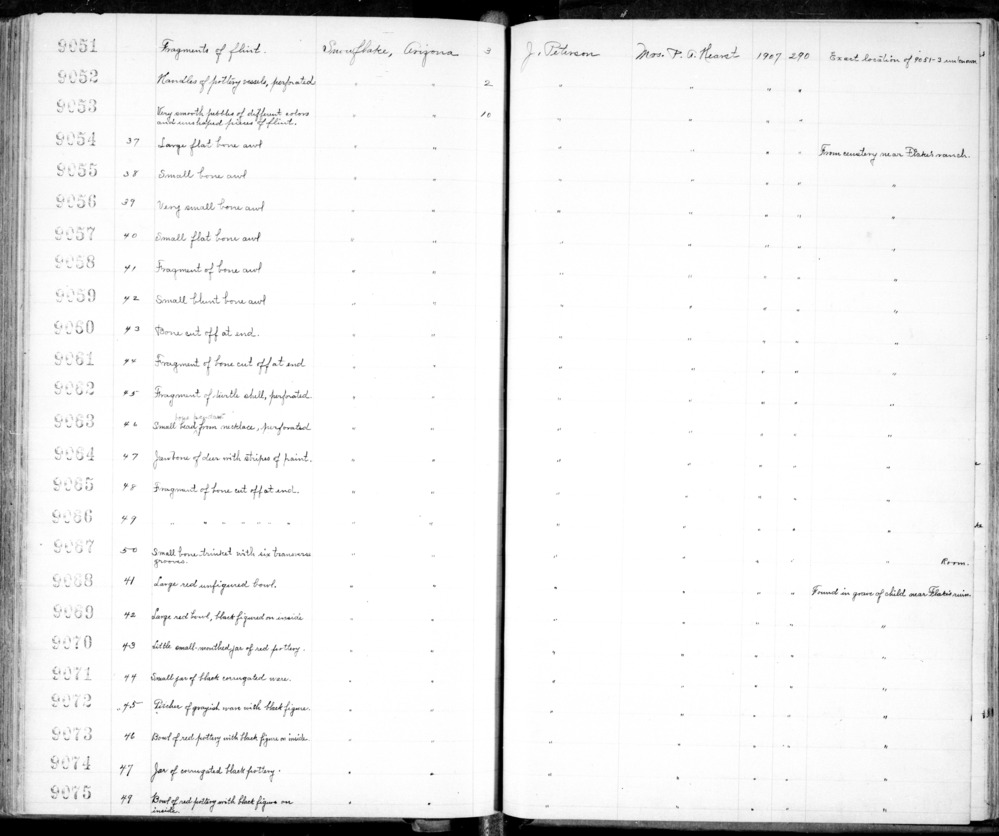 9051 Fragments of flint. Snowflake, Arizona 3 J. Peterson Mrs. P. A. Hearst 1907 290 Exact location of 9051-3 unknown
9052 Handles of pottery vessels, perforated " " 2 " " " "
9053 Very smooth pebbles of different colors " " 10 " " " "
and unshaped pieces of flint.
9054 37 Large flat bone awl " " " " " " From cemetery near Flake's ranch.
9055 38 Small bone awl " " " " " " "
9056 39 Very small bone awl " " " " " " "
9057 40 Small flat bone awl " " " " " " "
9058 41 Fragment of bone awl " " " " " " "
9059 42 Small blunt bone awl " " " " " " "
9060 43 Bone cut off at end. " " " " " " "
9061 44 Fragment of bone cut off at end " " " " " " "
9062 45 Fragment of turtle shell, perforated. " " " " " " "
9063 46 Small bead from necklace, perforated " " " " " " "
9064 47 Jawbone of deer with stripes of paint. " " " " " " "
9065 48 Fragment of bone cut off at end. " " " " " " "
9066 49 " " " " " " " " " " " " "
9067 50 Small bone trinket with six transverse " " " " " " " Room.
grooves.
9068 41 Large red unfigured bowl. " " " " " " Found in grave of child near Flake's ruin
9069 42 Large red bowl, black figured on inside " " " " " " "
9070 43 Little small-mouthed jar of red pottery. " " " " " " "
9071 44 Small jar of black corrugated ware. " " " " " " "
9072 45 Pitcher of grayish ware with black figure. " " " " " " "
9073 46 Bowl of red pottery with black figure on inside. " " " " " " "
9074 47 Jar of corrugated black pottery. " " " " " " "
9075 49 Bowl of red pottery with black figure on " " " " " " "
inside.